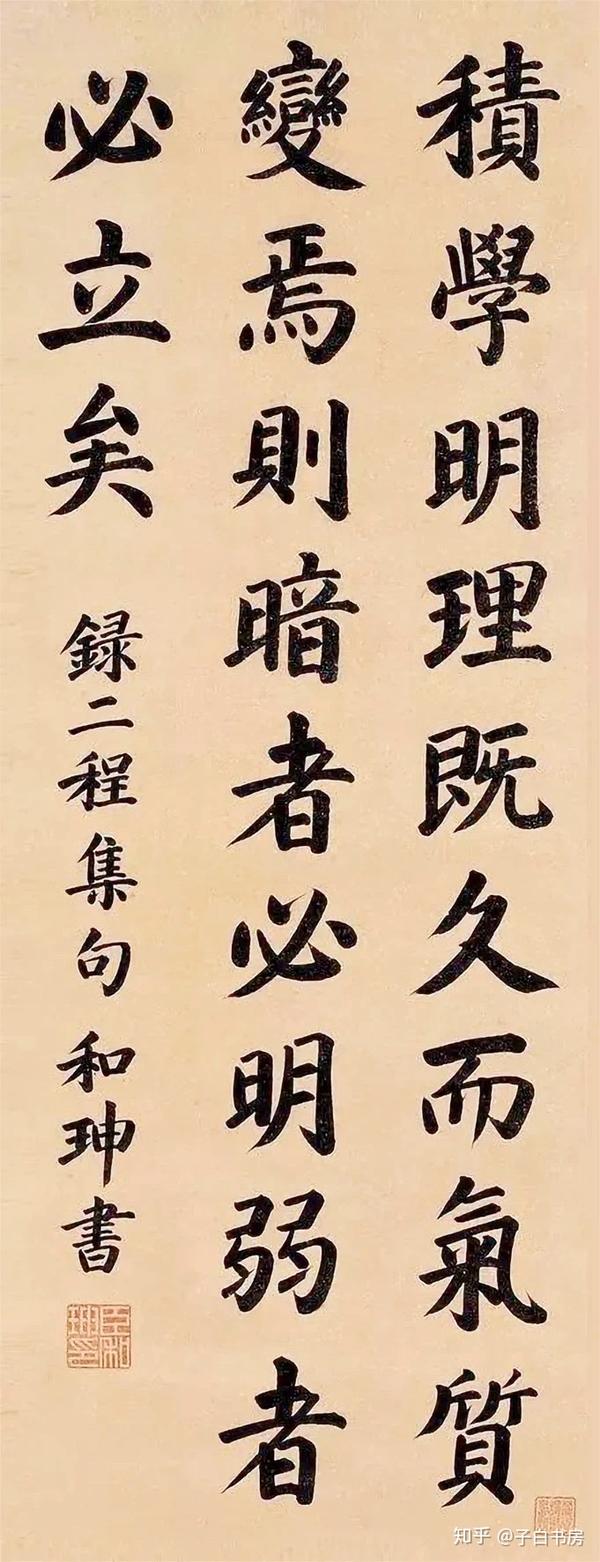 積學明理既久而氣質
變焉則暗者必明弱者
必立矣
録二程集句 和珅書
臣和珅印
知乎 @子白书房